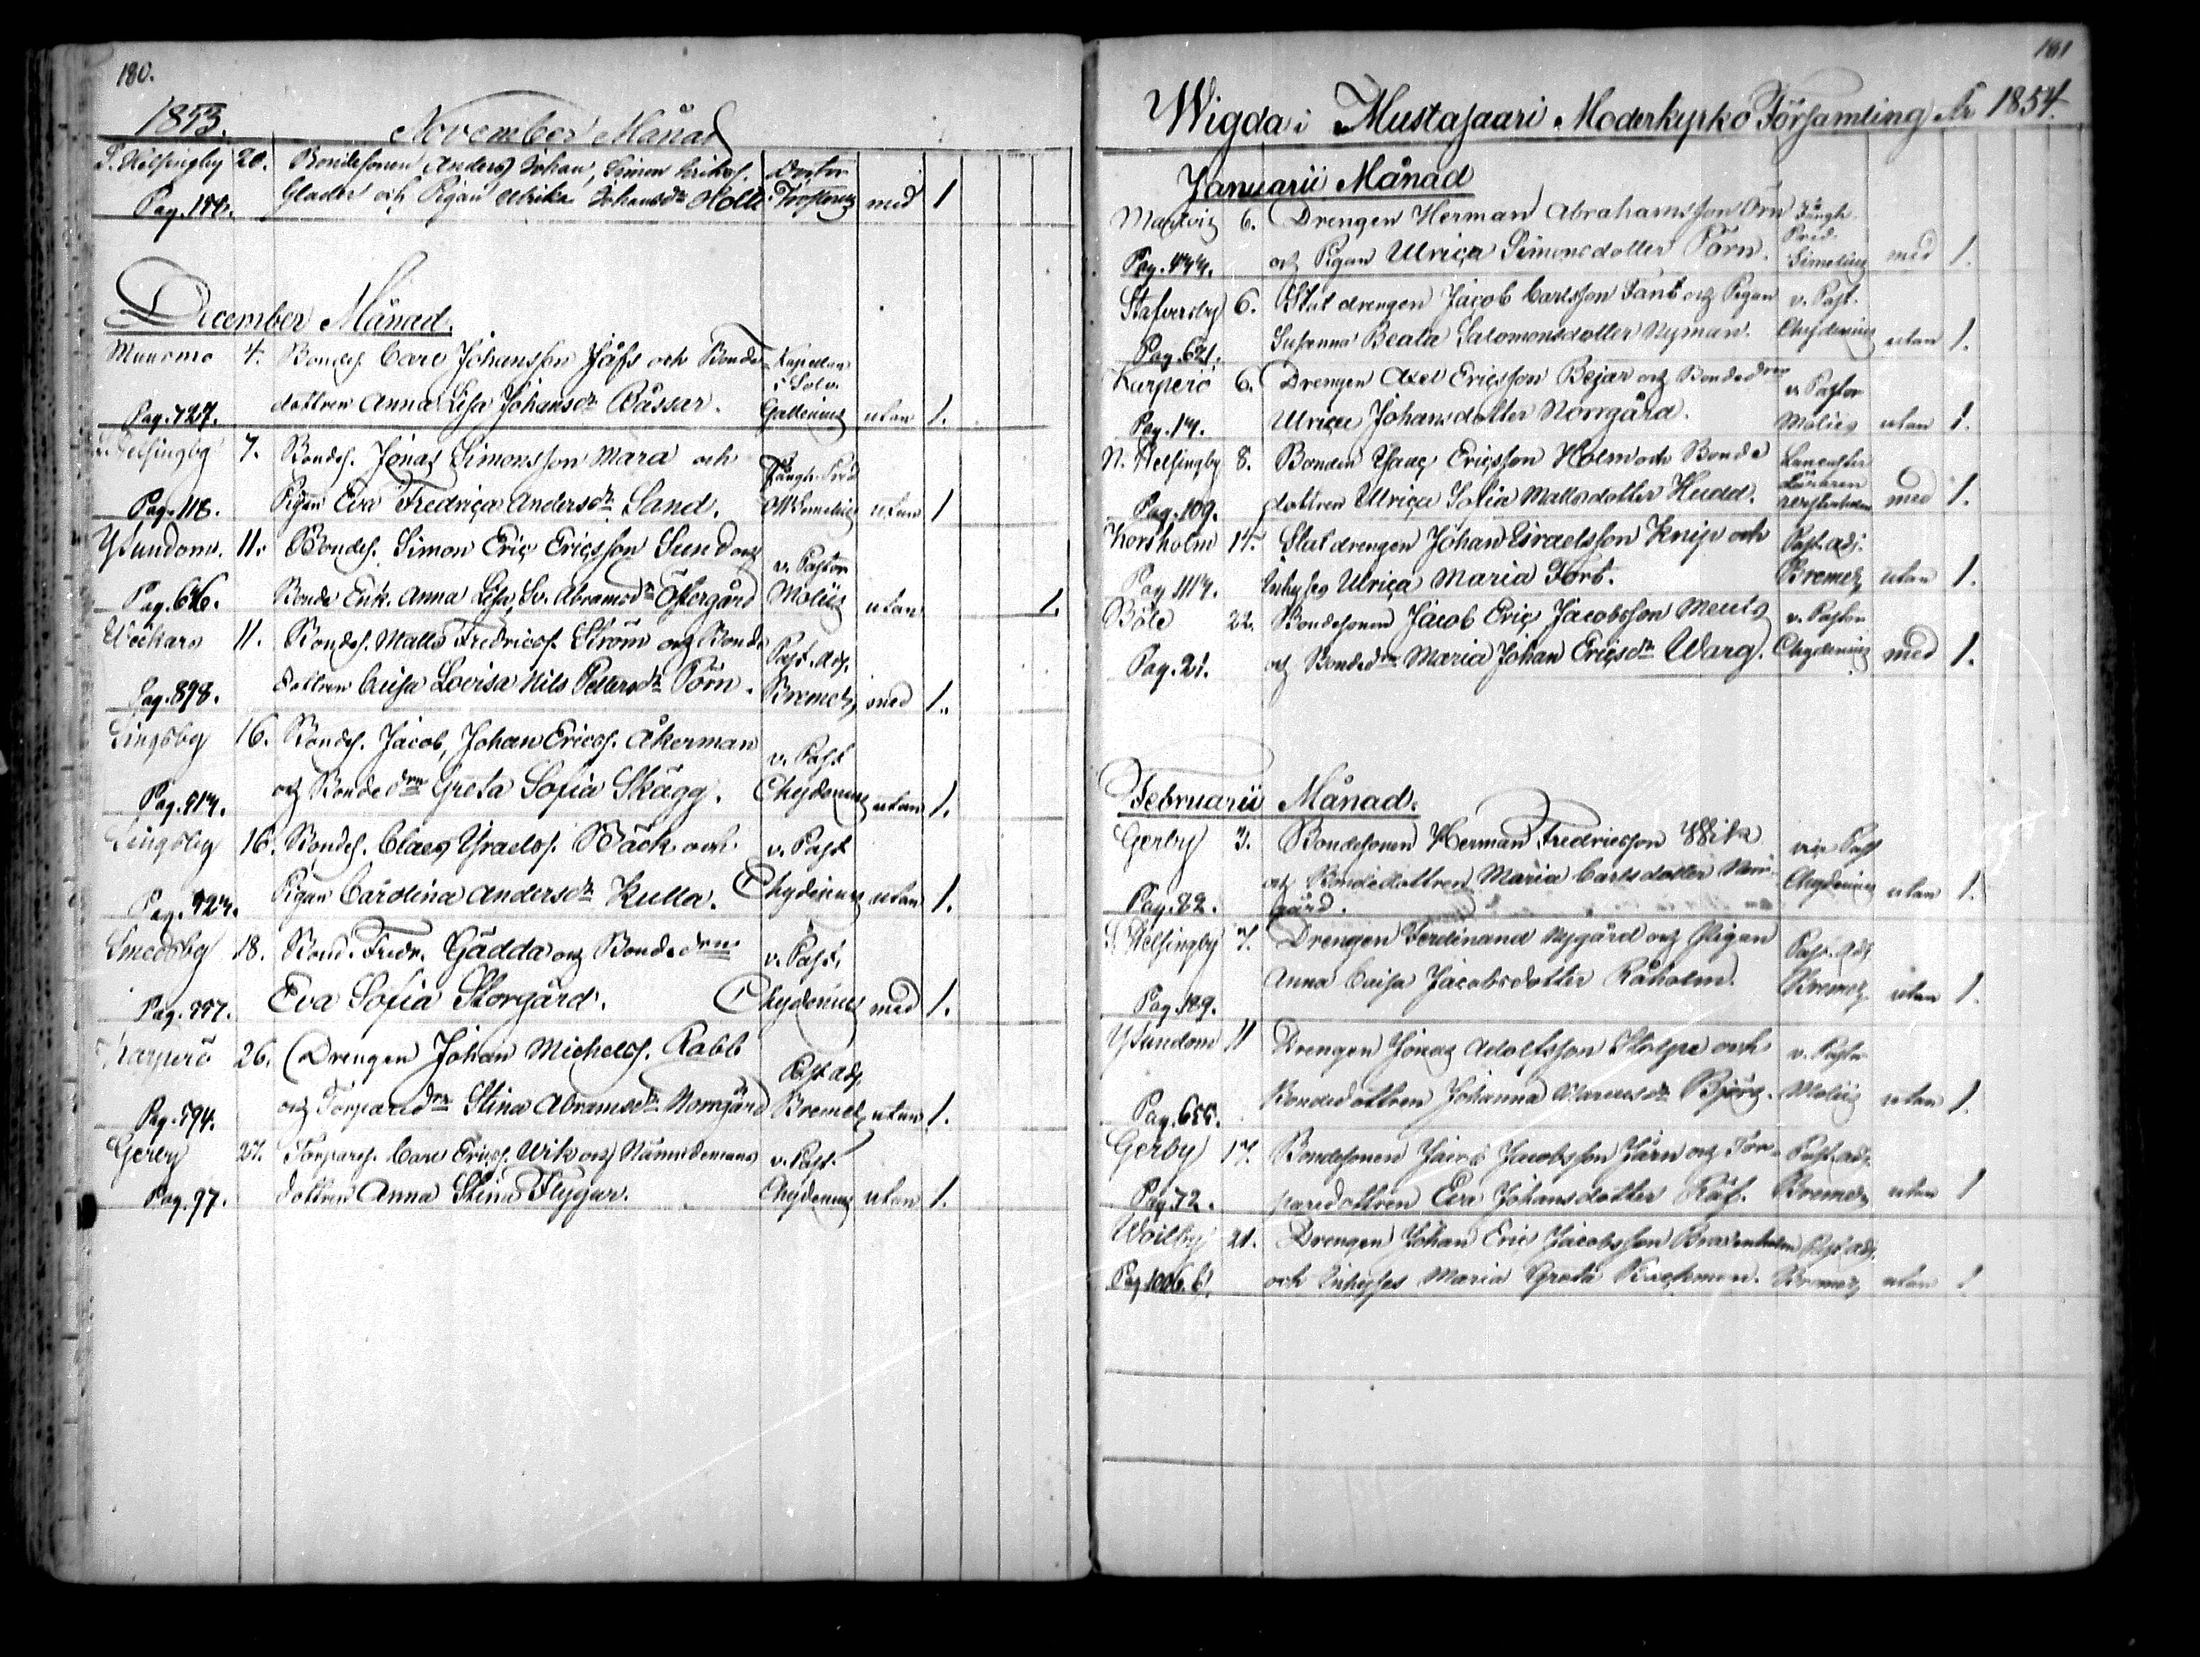 180.
1853. November Månad
S. Helsingby 20. Bondesonen Anders Johan, Simon Eriks. Doctor
Pag. 158. Glader och Pigan Ulrika Johansdr Holle med 1
December Månad.
Munsmo 4. Bondes. Carl Johansson Jåfs och Bonde Kapellan i Solv.
Pag. 727. dottren Anna Lisa Johansdr Båssar. utan 1.
Helsingby 7. Bondes. Jonas Simonsson Mara och
Pag. 118. Pigan Eva Fredrica Andersdr Sand. utan 1
Ysundom. 11. Bondes. Simon Eric Ericsson Sund och v. Pastor
Pag. 646. Bonde Enk. Anna Lisa Abramsdr Östergård Moliis utan 1.
Weckars 11. Bondes. Matts Fredrics. Ström och Bonde Past. adj.
Pag. 898. dottren Caisa Lovisa Nils Pettersdr Törn. Bremer, med 1.
Singsby 16. Bondes. Jacob, Johan Erics. Åkerman v. Past
Pag. 914. och Bonde drn Greta Sofia Skägg. Chydenius utan 1.
Singsby 16. Bondes. Claes Israels. Bäck och v. Past
Pag. 924. Pigan Carolina Andersdr Kulla. Chydenius utan 1.
Smedsby 18. Bond. Fredr. Gädda och Bonde drn v. Past.
Pag. 997. Eva Sofia Storgård. Chydenius med 1.
Karperö 26. Drengen Johan Michels. Rabb Past adj.
Pag. 594. och Torpare drn Stina Abramsdr Norrgård Bremer utan 1.
Gerby 27. Torpares. Carl Erics. Wik och Nämndemans v. Past.
Pag. 97. dottren Anna Stina Flygar. Chydenius utan 1.
181
Wigda i Mustasaari Moderkyrko Församling År 1854.
Januarii Månad
Martois 6. Drengen Herman Abrahamsson Örn Fängh. Pred.
Pag. 444. och Pigan Ulrica Simonsdotter Törn. Simelius med 1.
Staversby 6. Statdrengen Jacob Carlsson Fant och Pigan v. Past.
Pag. 621. Susanna Beata Salomonsdotter Nyman. Chydenius utan 1.
Karperö 6. Drengen Axel Ericsson Bejar och Bondedren v. Pastor
Pag. 14. Ulrica Johansdotter Norrgård. Moliis utan 1.
N. Helsingby 8. Bonden Isaac Ericsson Holm och Bonde
Pag. 109. dottren Ulrica Sofia Mattsdotter Hudd. med 1.
Korsholm 15. Statdrengen Johan Israelsson Knip och Past. adj.
Pag 1114. Inhyses Ulrica Maria Fort. Bremer utan 1.
Böle 22. Bondesonen Jacob Eric Jacobsson Meuts v. Pastor
Pag. 21. och Bondedrn Maria Johan Ericsdr Warg. Chydenius med 1.
Februarii Månad.
Gerby 3. Bondesonen Herman Fredricsson Wik vice Past
Pag. 82. och Bondedottren Maria Carlsdotter Norr- Chydenius utan 1.
gård.
S. Helsingby 7. Drengen Ferdinand Nygård och Pigan Past. adj
Pag. 109. Anna Caisa Jacobsdotter Råholm. Bremer utan 1.
Ysundom 11 Drengen Jonas Adolfsson Stolpe och v. Pastor
Pag. 655. Bondedottren Johanna Marcusdr Björg. Moliis utan 1.
Gerby 17. Bondesonen Jacob Jacobsson Järn och Tor- Past. adj.
Pag. 72. paredottren Eva Johansdotter Räf. Bremer utan 1
Woitby 21. Drengen Johan Eric Jacobsson Bradenholm Past. adj.
Pag 1006. b. och Inhyses Maria Greta Backman. Bremer utan 1